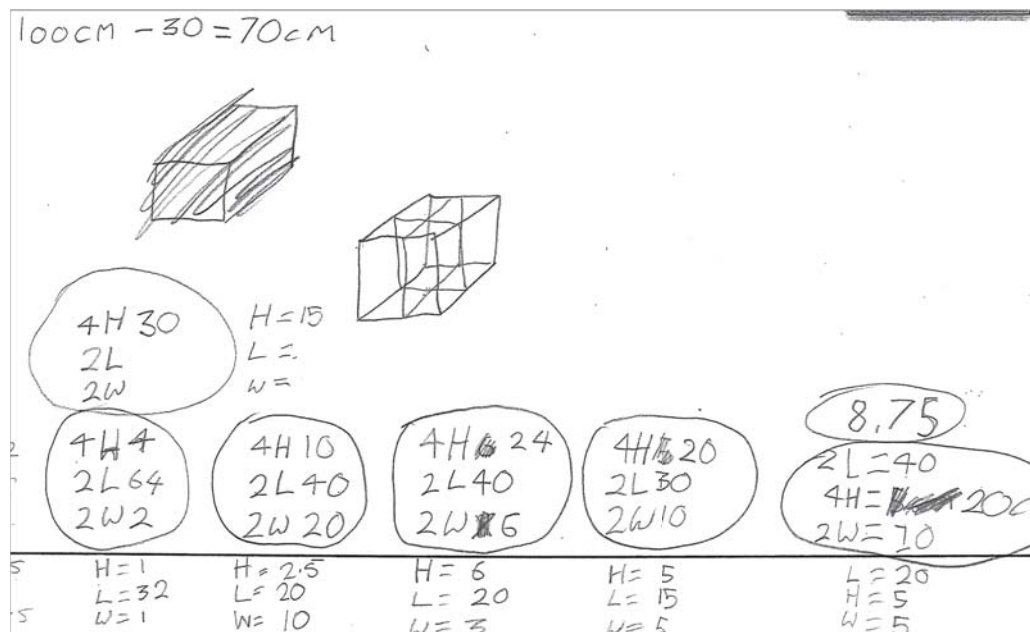 100cm - 30 = 70cm
4H 30
2L
2W
H = 15
L =
W =
8.75
4H 4
2L 64
2W 2
4H 10
2L 40
2W 20
4H 24
2L 40
2W 6
4H 20
2L 30
2W 10
2L = 40
4H = 20c
2W = 10
H = 1
L = 32
W = 1
H = 2.5
L = 20
W = 10
H = 6
L = 20
W = 3
H = 5
L = 15
W = 5
L = 20
H = 5
W = 5